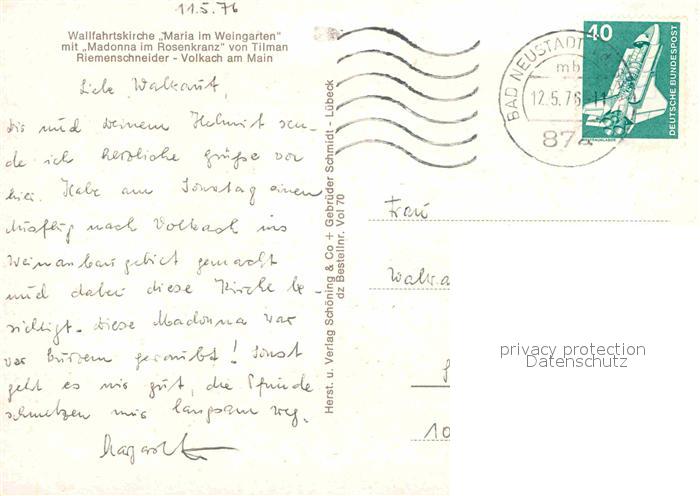 11.5.76
Wallfahrtskirche „Maria im Weingarten"
mit „Madonna im Rosenkranz" von Tilman
Riemenschneider - Volkach am Main
Liebe Waltraut,
dir und deinem Helmut sen-
de ich herzliche Grüße von
hier. Habe am Sonntag einen
Ausflug nach Volkach ins
Weinanbaugebiet gemacht
und dabei diese Kirche be-
sichtigt. Diese Madonna war
vor kurzem geraubt! Sonst
geht es mir gut, die Pfunde
schmelzen mir langsam weg.
Herst. u. Verlag Schöning & Co + Gebrüder Schmidt - Lübeck
dz Bestellnr. Vol 70
BAD NEUSTADT
mb
12.5.76-11
874
40
DEUTSCHE BUNDESPOST
Frau
10
privacy protection
Datenschutz